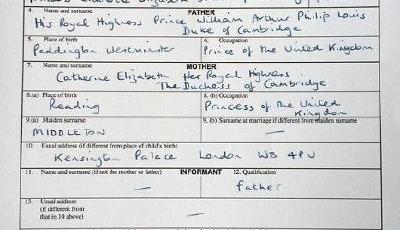 4. Name and surname FATHER
His Royal Highness Prince William Arthur Philip Louis
Duke of Cambridge
5. Place of birth 6. Occupation
Paddington Westminster Prince of the United Kingdom
7. Name and surname MOTHER
Catherine Elizabeth Her Royal Highness
The Duchess of Cambridge
8.(a) Place of birth 8. (b) Occupation
Reading Princess of the United
Kingdom
9.(a) Maiden surname 9. (b) Surname at marriage if different from maiden surname
MIDDLETON —
10. Usual address (if different from place of child's birth)
Kensington Palace London W8 4PU
11. Name and surname (if not the mother or father) INFORMANT 12. Qualification
— Father
13. Usual address
(if different from
that in 10 above) —